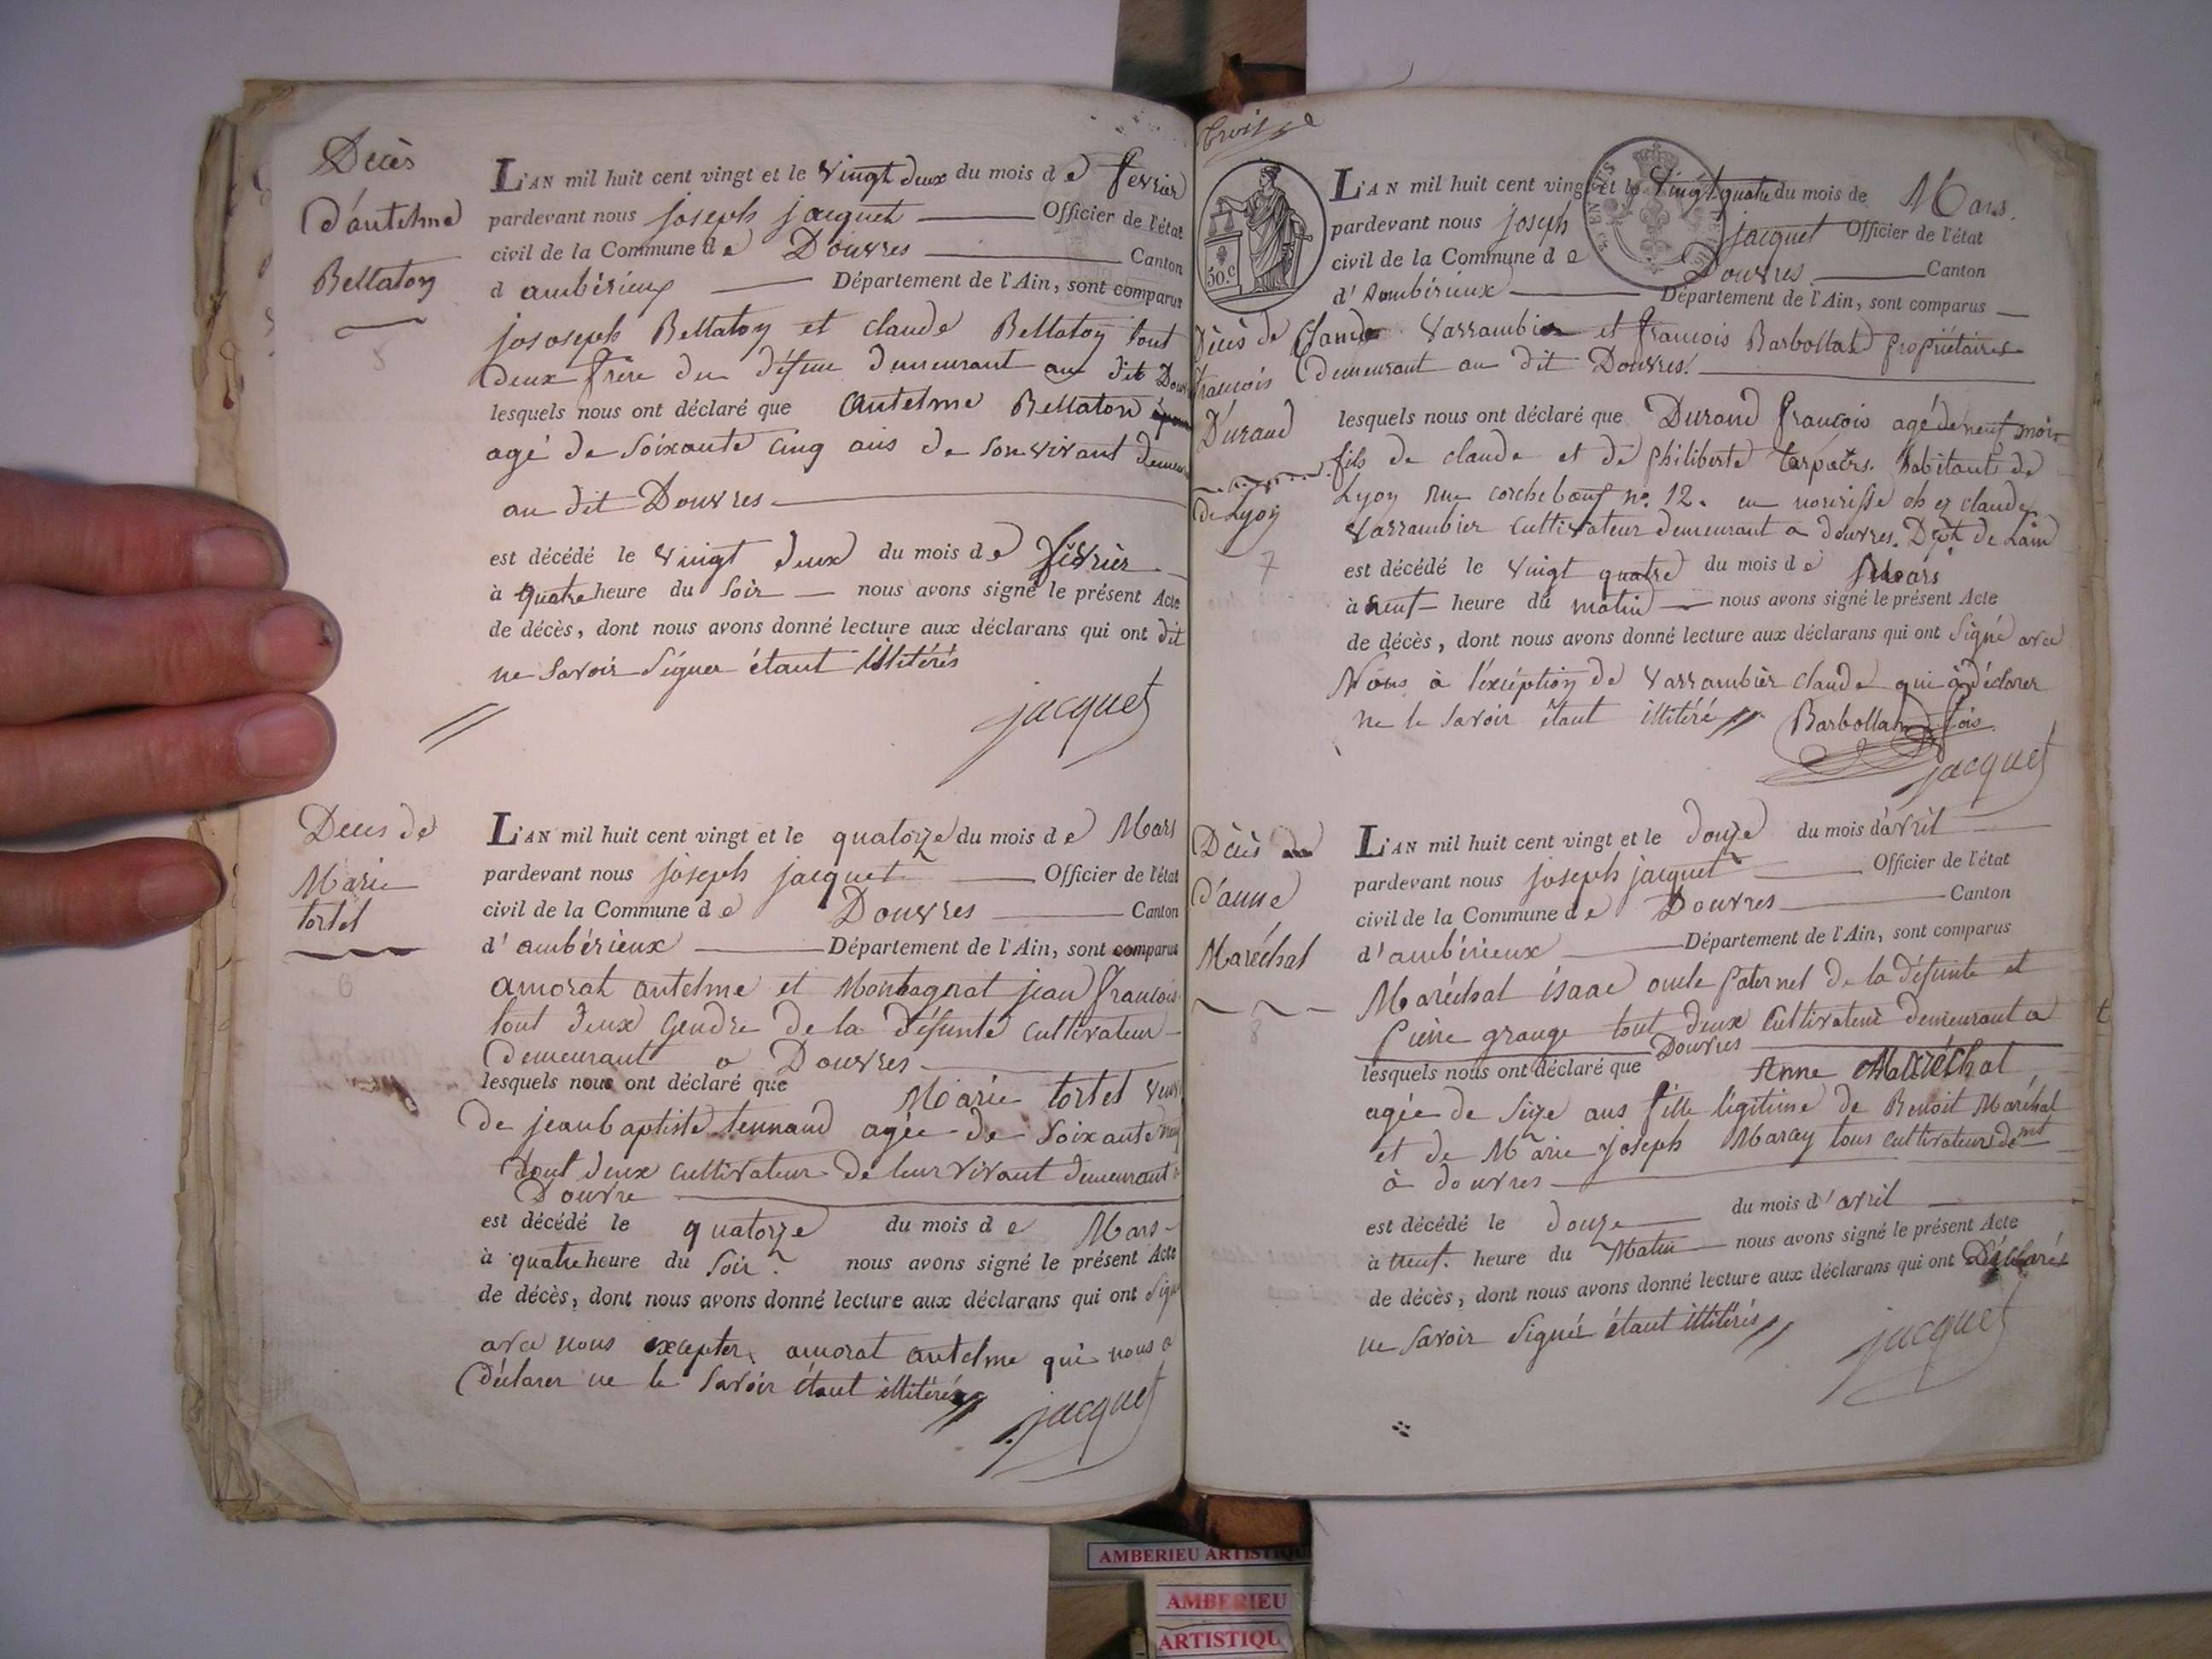 Decès
d'antelme
Bellaton
5
L'AN mil huit cent vingt et le vingt deux du mois de fevrier
pardevant nous joseph jacquet Officier de l'état
civil de la Commune de Douvres Canton
d ambérieux Département de l'Ain, sont comparus
jososeph Bellaton et claude Bellaton tout
deux frère du défunt demeurant au dit Douv
lesquels nous ont déclaré que Antelme Bellaton
agé de soixante cinq ans de son vivant demeu
au dit Douvres
est décédé le vingt deux du mois de février
à quatre heure du soir nous avons signé le présent Acte
de décès, dont nous avons donné lecture aux déclarans qui ont dit
ne savoir signer étant illitérés
jacquet
Deces de
Marie
tortel
6
L'AN mil huit cent vingt et le quatorze du mois de Mars
pardevant nous joseph jacquet Officier de l'état
civil de la Commune de Douvres Canton
d'ambérieux Département de l'Ain, sont comparus
amorat antelme et Montagnat jean françois
tout deux Gendre de la défunte cultivateur
demeurant a Douvres
lesquels nous ont déclaré que Marie tortel veuv
de jean baptiste tennand agée de soixante
tout deux cultivateur de leur vivant demeurant a
Douvre
est décédé le quatorze du mois de Mars
à quatre heure du soir nous avons signé le présent Acte
de décès, dont nous avons donné lecture aux déclarans qui ont signé
avec nous excepter amorat antelme qui nous a
déclarer ne le savoir étant illitérés
jacquet
trois
50.c
L'AN mil huit cent vingt et le vingt quatre du mois de Mars.
pardevant nous joseph jacquet Officier de l'état
civil de la Commune de Douvres Canton
d'Ambérieux Département de l'Ain, sont comparus
Décès de
françois
Durand
de Lyon
7
Claude Varrambier et françois Barbollad propriétaires
demeurant au dit Douvres.
lesquels nous ont déclaré que Durand françois agé de neuf mois
fils de claude et de philiberte habitants de
Lyon Rue corchebœuf no. 12. en norrisse chez claude
Varrambier cultivateur demeurant a douvres. Dpt de Lain
est décédé le vingt quatre du mois de Mars
à neuf heure du matin nous avons signé le présent Acte
de décès, dont nous avons donné lecture aux déclarans qui ont signé avec
Nous à l'exception de Varrambier claude qui a déclarer
ne le savoir étant illitéré Barbollad fois
jacquet
Décès
d'anne
Maréchal
8
L'AN mil huit cent vingt et le douze du mois d'avril
pardevant nous joseph jacquet Officier de l'état
civil de la Commune de Douvres Canton
d'ambérieux Département de l'Ain, sont comparus
Maréchal isaac oncle paternel de la défunte et
pierre grange tout deux Cultivateur demeurant a
Douvres
lesquels nous ont déclaré que Anne Maréchal
agée de seize ans fille légitime de Benoit Maréchal
et de Marie joseph Marcy tous cultivateurs demt
à douvres
est décédé le douze du mois d'avril
à neuf. heure du Matin nous avons signé le présent Acte
de décès, dont nous avons donné lecture aux déclarans qui ont Déclarés
ne savoir signér étant illitérés
jacquet
AMBERIEU ARTISTIQU
AMBERIEU
ARTISTIQU